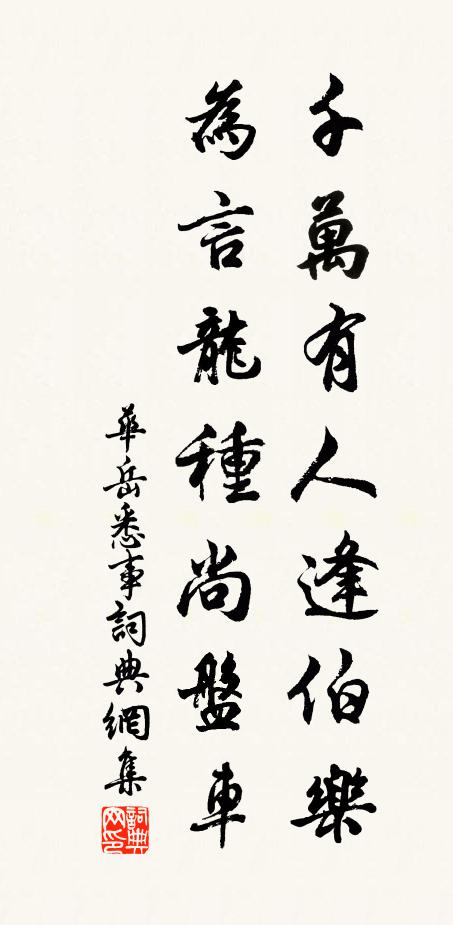 千萬有人逢伯樂
為言龍種尚盤車
華岳悉事詞典網集
詞典網印